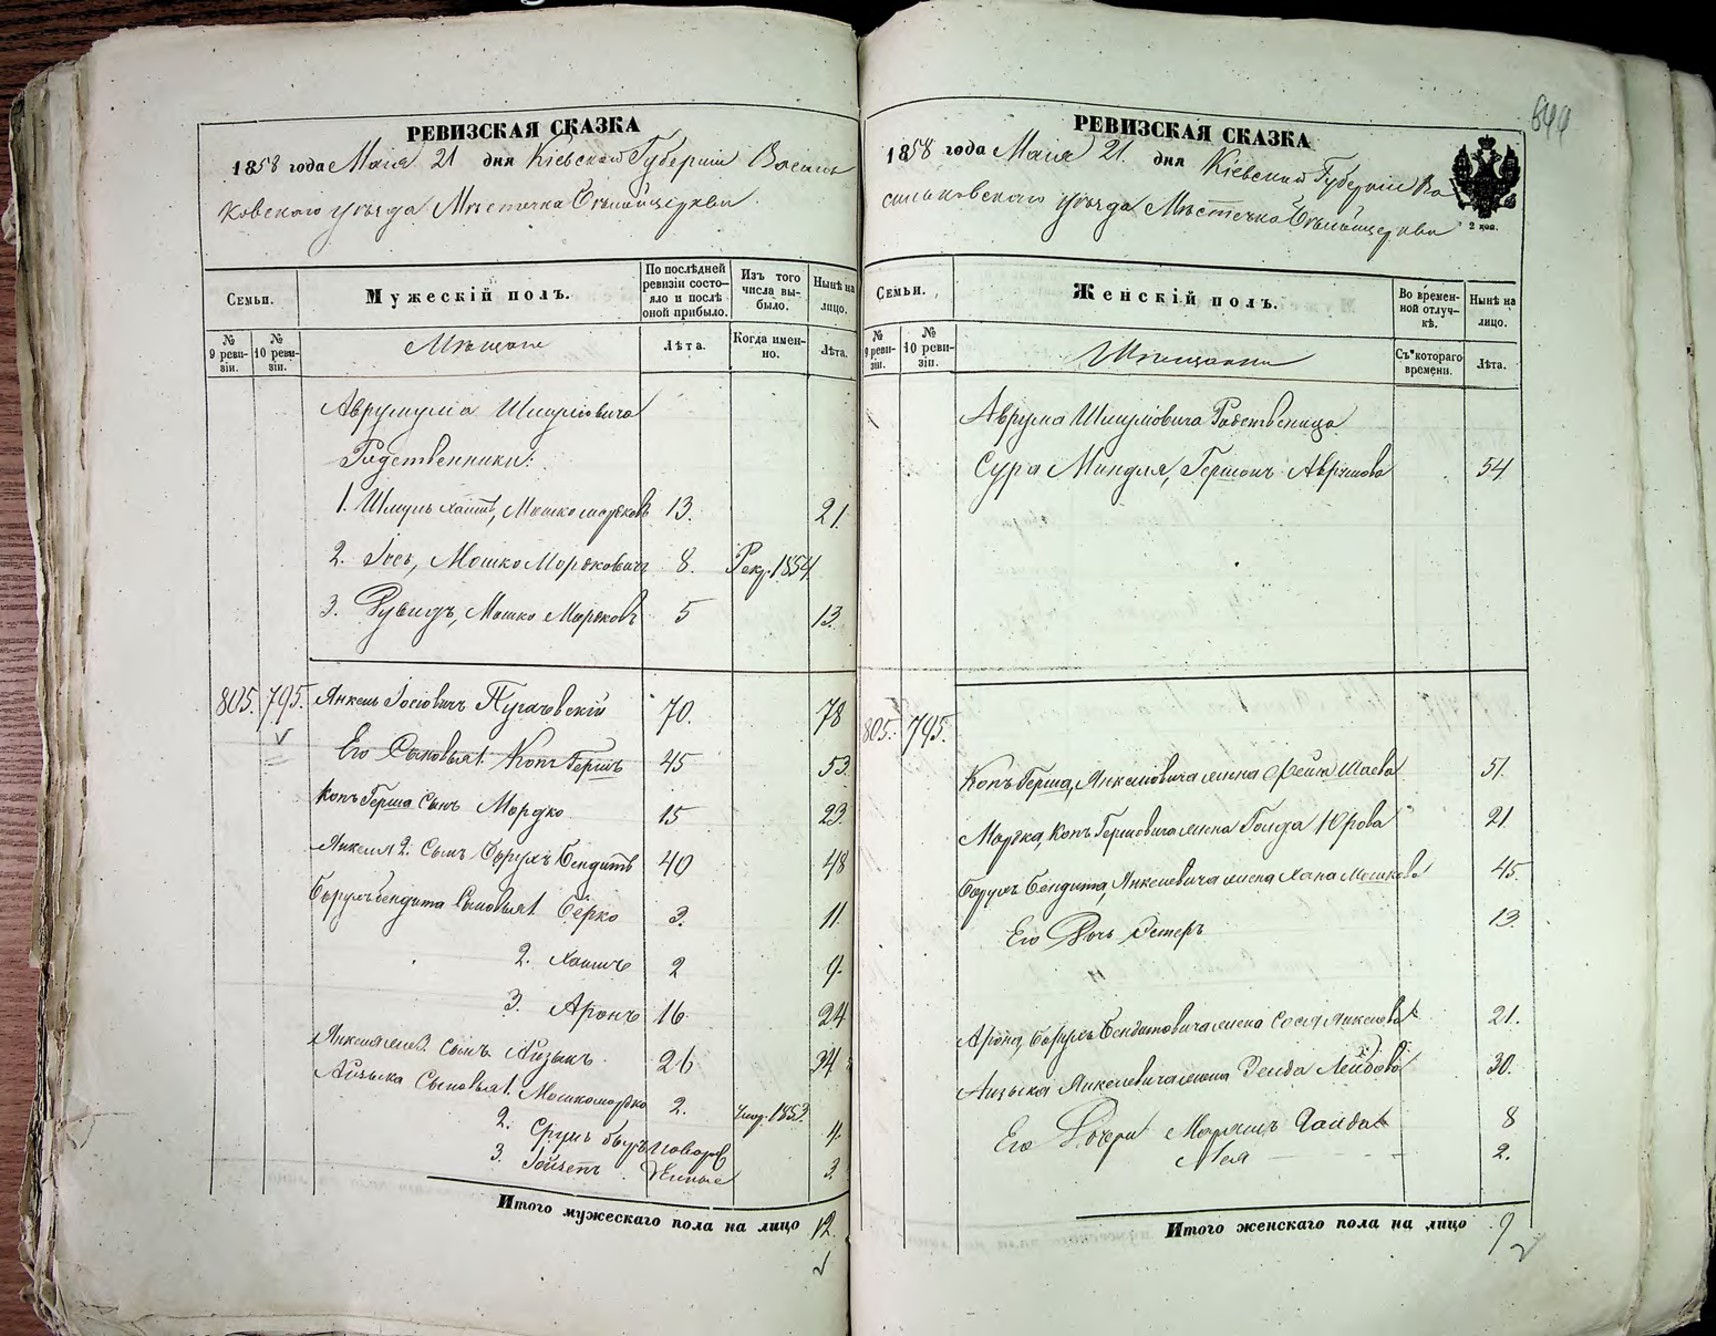 РЕВИЗСКАЯ СКАЗКА
1858 года Маія 21 дня Кіевской Губерніи Василь
ковскаго уѣзда Мѣстечка Бѣлойцеркви.
Семьи.
Мужескій полъ.
По послѣдней ревизіи состояло и послѣ оной прибыло.
Изъ того числа выбыло.
Нынѣ на лицо.
№ 9 ревизіи.
№ 10 ревизіи.
Мѣщане
Лѣта.
Когда именно.
Лѣта.
Шмуліовича
Родственники:
1. Шмуль Хаимъ, Мошко Мордковъ 13. 21.
2. Іось, Мошко Мордковичъ 8. Рекр. 1854
3. Рувидъ, Мошко Мордковъ 5 13.
805. 795. Янкель Іосіовичъ Пугачовскій 70. 78
Его Сыновья 1. Копъ Гершъ 45 53.
Копъ Герша Сынъ Мордко 15 23.
Янкеля 2. Сынъ Борухъ Бендитъ 40 48
Борухъ Бендита Сыновья 1. Берко 3. 11.
2. Хаимъ 2 9.
3. Аронъ 16 24
Янкеля 3. Сынъ Айзыкъ. 26 34
Айзыка Сыновья 1. Мошко Мордко 2. Умер. 1853.
2. Сруль 4.
3. 3.
Итого мужескаго пола на лицо 12.
РЕВИЗСКАЯ СКАЗКА
1858 года Маія 21. дня Кіевской Губерніи Ва
сильковскаго уѣзда Мѣстечка Бѣлойцеркви
2 коп.
Семьи.
Женскій полъ.
Во временной отлучкѣ.
Нынѣ на лицо.
№ 9 ревизіи.
№ 10 ревизіи.
Мѣщанки
Съ котораго времени.
Лѣта.
Аврума Шмуліовича Родственица
Сура Миндля, Гершонъ Аврумова 54
805. 795.
Копъ Герша, Янкеліовича жена Фейга Шаева 51.
Мордка, Копъ Гершовича жена Голда Юрова 21.
Борухъ Бендита, Янкелевича жена Хана Мошкова 45.
Его Дочь Эстеръ 13.
Арона, Борухъ Бендитовича жена Сося Янкелова 21.
Айзыка Янкелевича жена Лейбова 30.
Его Дочери 8
2.
Итого женскаго пола на лицо 9